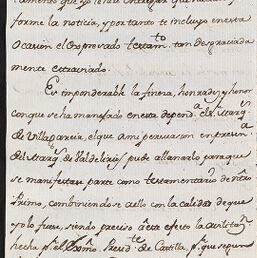 forme la noticia, y por tanto te incluyo en esta
Ocasion el expresado testam.to tan desgraciada
mente extraviado.
Es imponderable la fineza, honradez y honor
con que se ha manejado en esta depend.a el S.r Marq.s
de Villagarcia, el que á mi persuasion en presen.a
del Marq.s de Valdelirios pude allanarlo para que
se manifestase parte como testamentario de nr̃o
Primo, combiniendose a ello con la calidad de que
yolo fuese, siendo preciso á este efecto la
hecha p.r el Exmo Presid.te de Castilla, p.r que segun